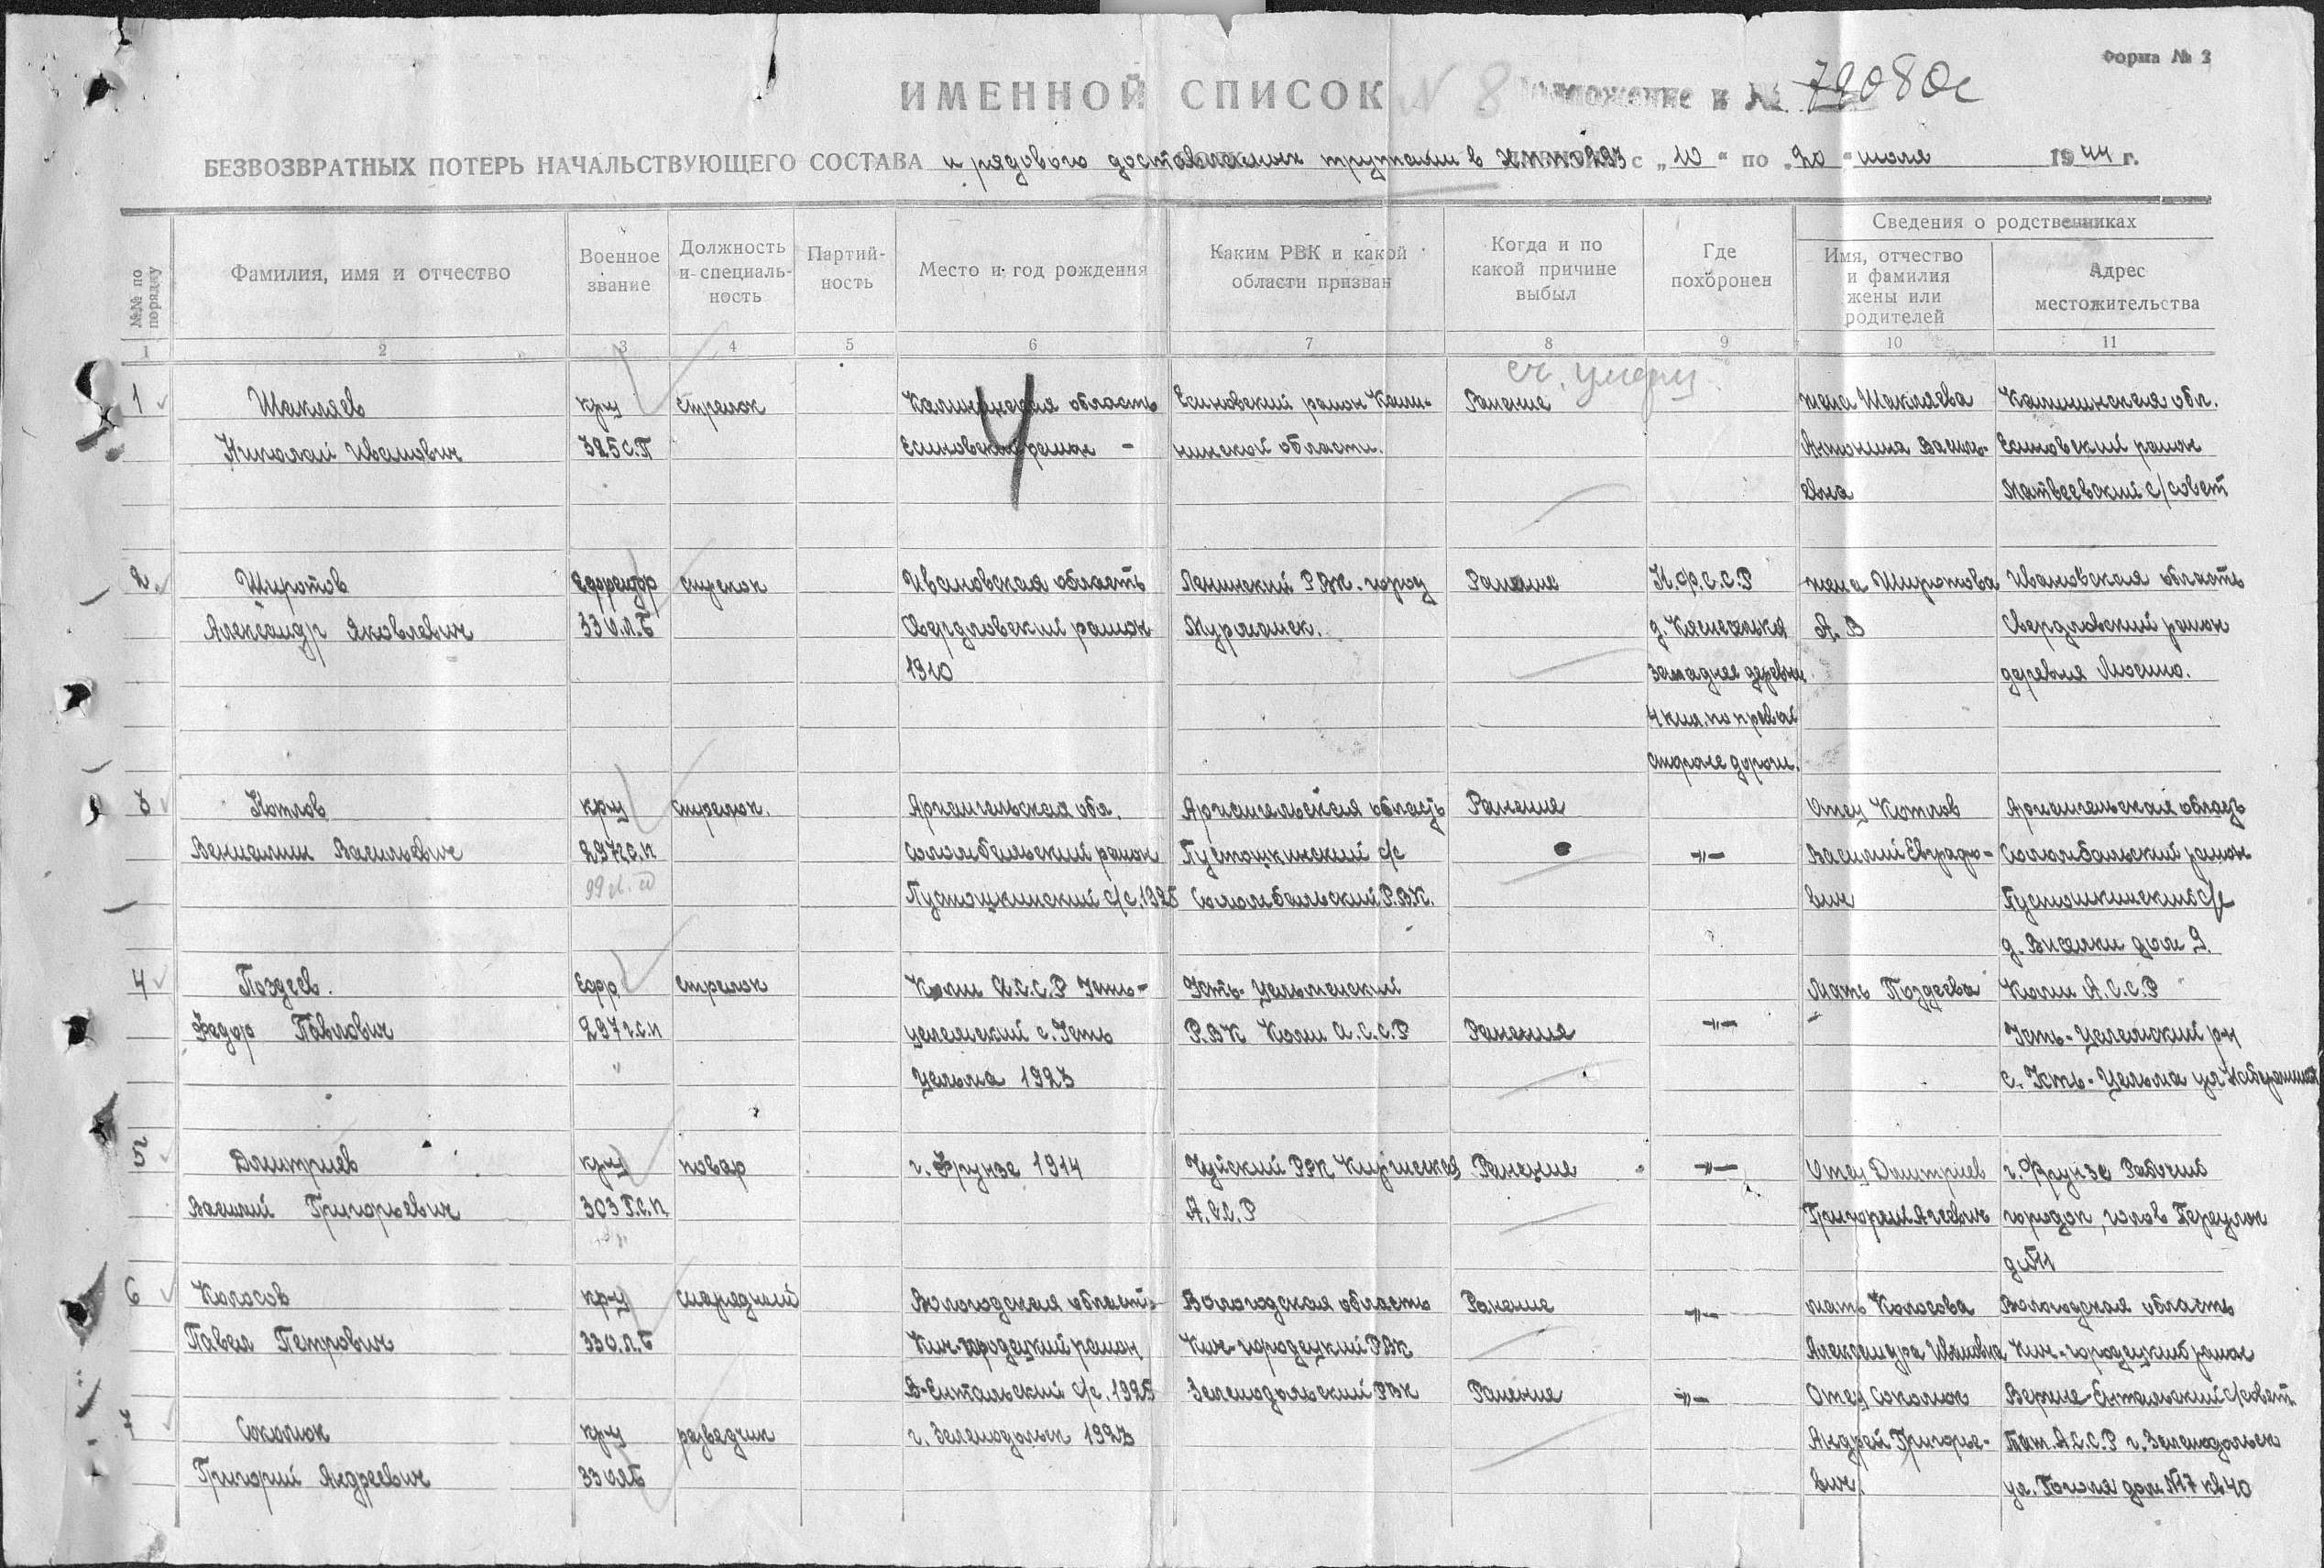 Форма № 3
ИМЕННОЙ СПИСОК N 8 Приложение к № 79080с
БЕЗВОЗВРАТНЫХ ПОТЕРЬ НАЧАЛЬСТВУЮЩЕГО СОСТАВА и рядового доставленных трупами в с „10“ по „20“ июля 1944 г.
№№ по порядку
Фамилия, имя и отчество
Военное звание
Должность и специаль-ность
Партий-ность
Место и год рождения
Каким РВК и какой области призван
Когда и по какой причине выбыл
Где похоронен
Сведения о родственниках
Имя, отчество и фамилия жены или родителей
Адрес местожительства
1 2 3 4 5 6 7 8 9 10 11
см. умерш
1 Шакляев кр-ц стрелок Калининская область Есиновский район Кали- Ранение жена Шакляева Калининская обл.
Николай Иванович 325 с.п Есиновский район - нинской области. Антонина Василь- Есиновский район
евна Матвеевский с/совет
4
2. Широтов Ефрейтор стрелок Ивановская область Ленинский РВК. город Ранение К.Ф.С.С.Р жена Широтова Ивановская область
Александр Яковлевич 33 о.л.б Свердловский район Мурманск. д. А. В Свердловский район
1910 западнее деревни деревня
4 клм. по правой
стороне дороги.
3 Котлов кр-ц стрелок. Архангельская обл. Архангельская область Ранение Отец Котлов Архангельская область
Вениамин Васильевич 297 г.с.п Соломбальский район Пустошкинский с/с -"- Василий Евграфо- Соломбальский район
99 Пустошкинский с/с. 1925 Соломбальский Р.В.К. вич Пустошкинский с/с
д. Виселки дом 9.
4 Поздеев. Ефр. Стрелок Коми А.С.С.Р Усть- Усть-Цильменский Мать Поздеева Коми А.С.С.Р
Федор Павлович 297 г.с.п цилемский с. Усть Р.В.К Коми А.С.С.Р Ранение -"- - Усть-Цилемский р-н
" Цельма 1923 с. Усть-Цельма ул Набережная
5 Дмитриев кр-ц повар г. Фрунзе 1914 Чуйский РВК Киргизской Ранение -"- Отец Дмитриев г. Фрунзе Рабочий
Василий Григорьевич 303 г.с.п А.С.С.Р Григорий городок, Переулок
д №11
6 Колосов кр-ц снарядный Вологодская область Вологодская область Ранение -"- мать Колосова Вологодская область
Павел Петрович 33 о.л.б Кич-городецкий район Кич-городецкий РВК Александра Ивановна Кич-городецкий район
В-Ентальский с/с. 1925 Зеленодольский РВК Ранение -"- Отец Соколюк Верхне-Ентальский с/совет.
7 Соколюк кр-ц разведчик г. Зеленодольск 1923 Андрей Григорье- Тат. А.С.С.Р г. Зеленодольск
Григорий Андреевич 33 олб вич. ул. Гоголя дом №17 кв 40